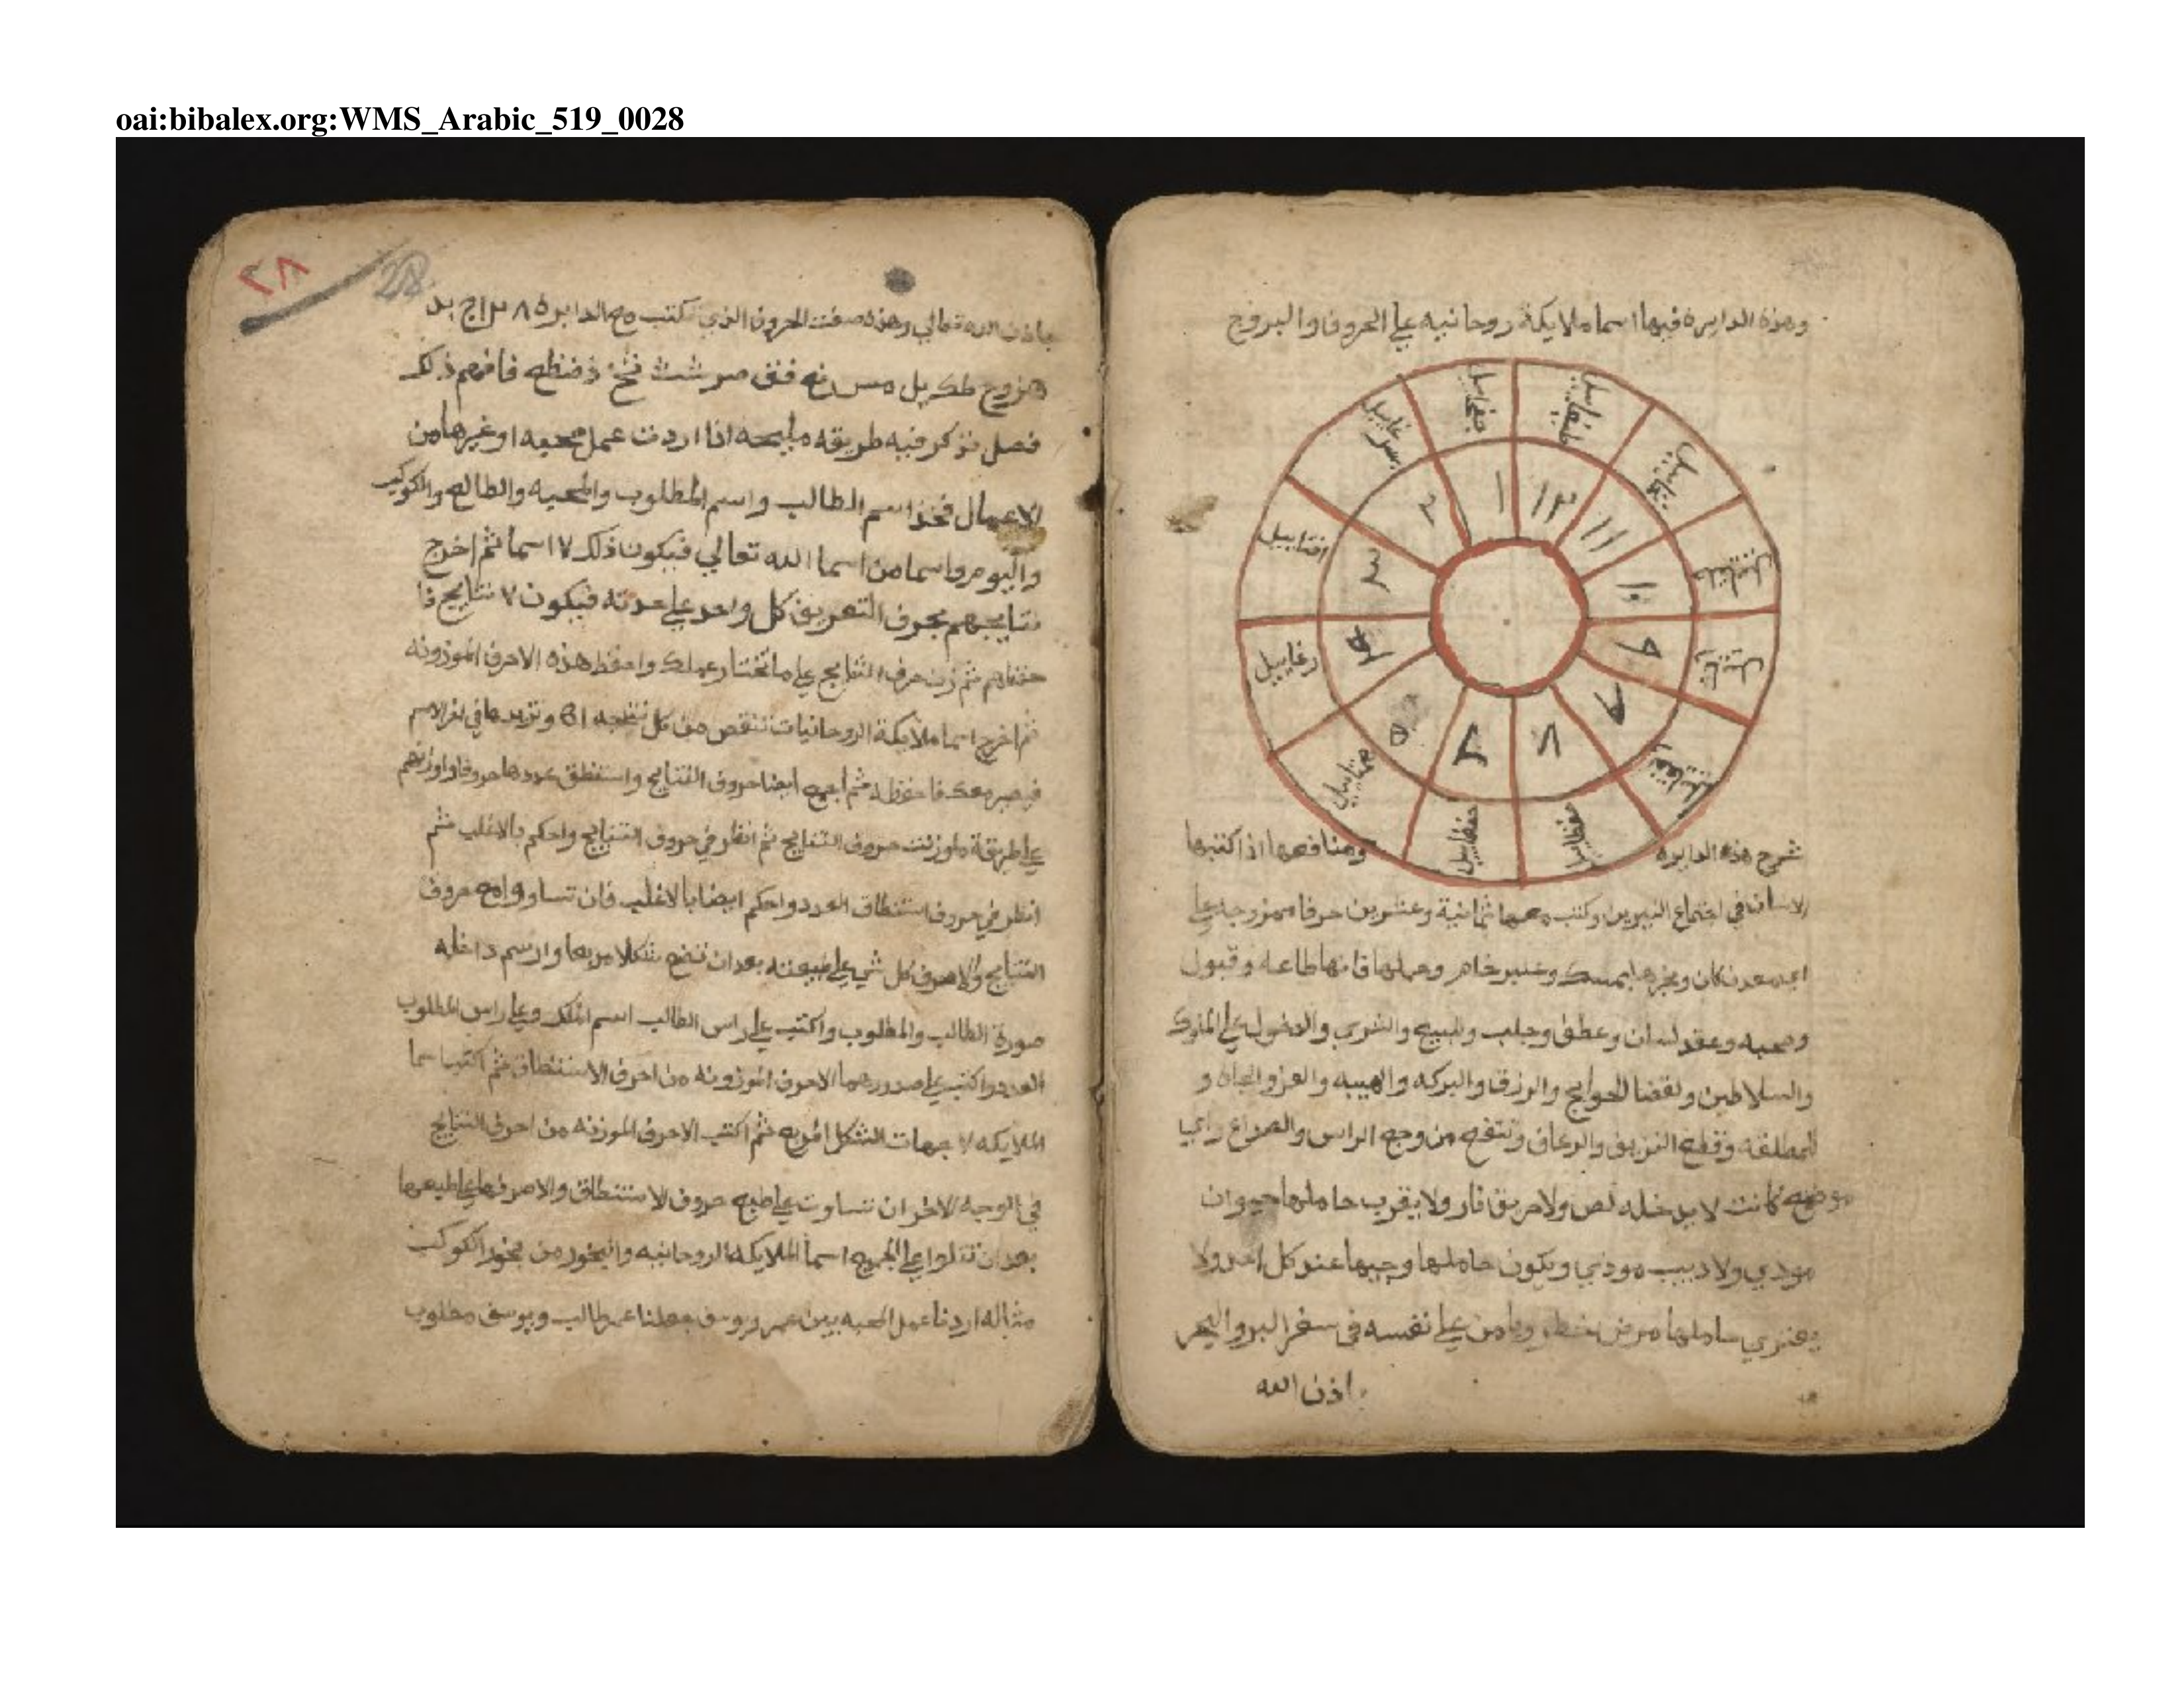 oai:bibalex.org:WMS_Arabic_519_0028
وهذه الدايره فيها اسما ملايكة روحانيه علي الحروف والبروج
١
٢
٣
٥
٨
٩
١٠
١١
١٢
افتاييل
رغاييل
شرح هذه الدايره ومنافعها اذا كتبها
الانسان في اجتماع النيرين وكتب معها ثمانية وعشرين حرفا ممزوجه علي
اي معدن كان وبخرها بمسك وعنبر خام وحملها فانها طاعه وقبول
ومحبه وعقد لسان وعطف وجلب وللبيع والشري والدخول علي الملوك
والسلاطين ولقضا الحوايج والرزق والبركه والهيبه والعز والجاه و
للمطلقه وقطع النزيف والرعاف وتنفع من وجع الراس والصداع واي
موضع كانت لا يدخله لص ولا حريق نار ولا يقرب حاملها حيوان
موذي ولا دبيب موذي ويكون حاملها وجيها عند كل احد ولا
يعتري حاملها مرض خطر ويامن علي نفسه في سفر البر والبحر
باذن الله
٢٨
28
باذن الله تعالي وهذه صفت الحروف الذي تكتب مع الدايره
فافهم ذلك
فصل نذكر فيه طريقه مليحه اذا اردت عمل محبه او غيرها من
الاعمال فخذ اسم الطالب واسم المطلوب والمحبه والطالع والكوكب
واليوم واسما من اسما الله تعالي فيكون ذلك ٧ اسما ثم اخرج
نتايجهم بحرف التعريف كل واحد علي حدته فيكون ٧ نتايج
ثم زن حرف النتايج علي ما تختار عملك واحفظ هذه الاحرف الموزونه
ثم اخرج اسما ملايكة الروحانيات تنقص من كل نتيجه وتزيدها في اخر الاسم
فيصير معك فاحفظه ثم اجمع ايضا حروف النتايج واستنطق عددها حروفا واوزنهم
علي طريقة ما وزنت حروف النتايج ثم انظر في حروف النتايج واحكم بالاغلب ثم
انظر في حروف استنطاق العدد واحكم ايضا بالاغلب فان تساووا امع حروف
النتايج والا صرف كل شي علي طبيعته بعد ان تضع شكلا مربعا وارسم داخله
صورة الطالب والمطلوب واكتب علي راس الطالب اسم الملك وعلي راس المطلوب
واكتب علي صدورهما الاحرف الموزونه من احرف الاستنطاق ثم اكتب اسما
الملايكه لا جهات الشكل المربع ثم اكتب الاحرف الموزنه من احرف النتايج
في الوجه الاخر ان تساوت علي طبع حروف الاستنطاق والا صرفها علي طبعها
بعد ان تتلوا علي الجميع اسما الملايكه الروحانيه والبخور من بخور الكوكب
مثاله اردنا عمل المحبه بين عمر ويوسف جعلنا عمر طالب ويوسف مطلوب